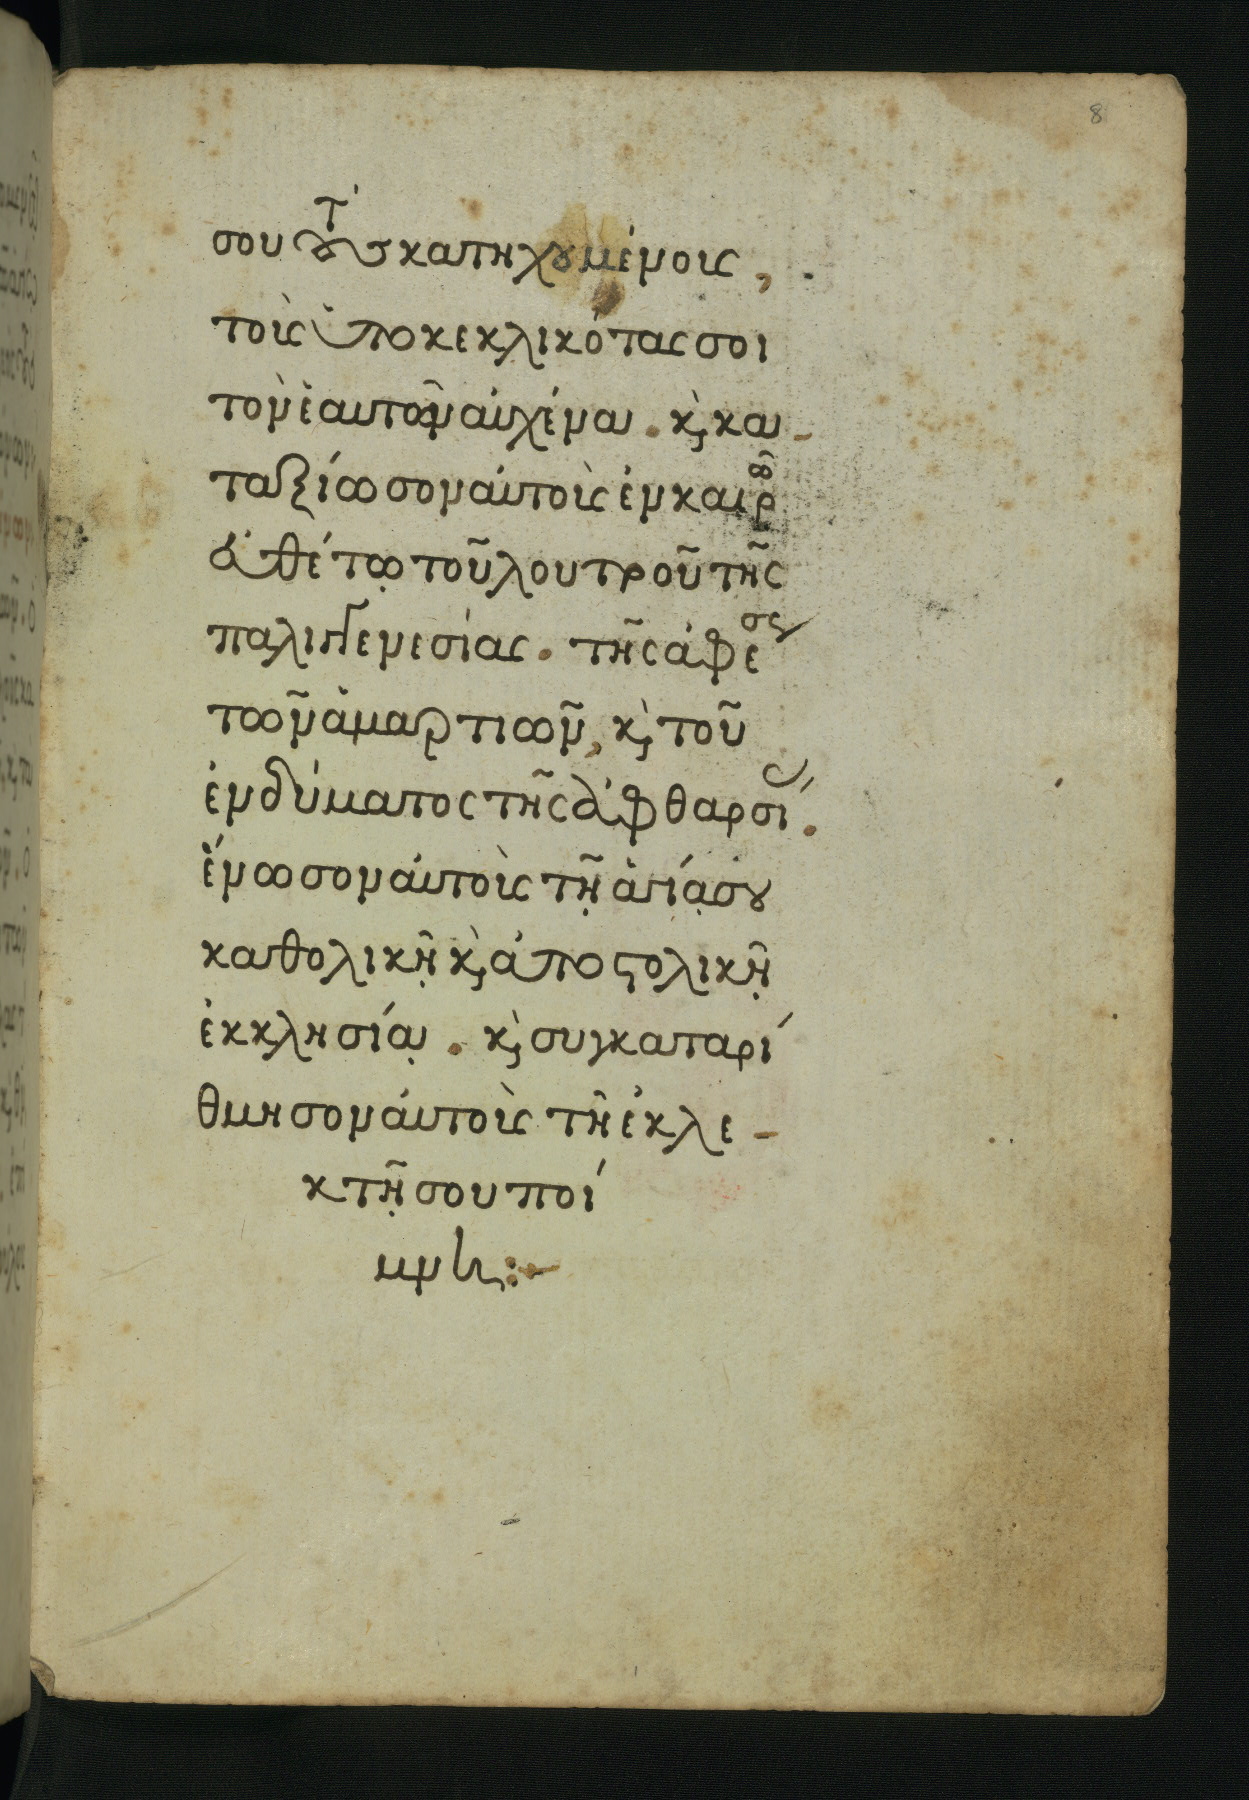 8
σου τοὺς κατηχουμένους,
τοὺς ὑποκεκλικότας σοι
τὸν ἑαυτῶν αὐχένα. κ̀ κα-
ταξίωσον αὐτοὺς ἐν καιρῶ
εὐθέτῳ τοῦ λουτροῦ τῆς
παλιγγενεσίας. τῆς ἀφέσεως
τῶν ἁμαρτιῶν, κ̀ τοῦ
ἐνδύματος τῆς ἀφθαρσίας.
ἕνωσον αὐτοὺς τῇ ἁγίᾳ σου
καθολικῇ κ̀ ἀποστολικῇ
ἐκκλησίᾳ. κ̀ συγκαταρί
θμησον αὐτοὺς τῇ ἐκλε-
κτῇ σου ποί
μνη:-